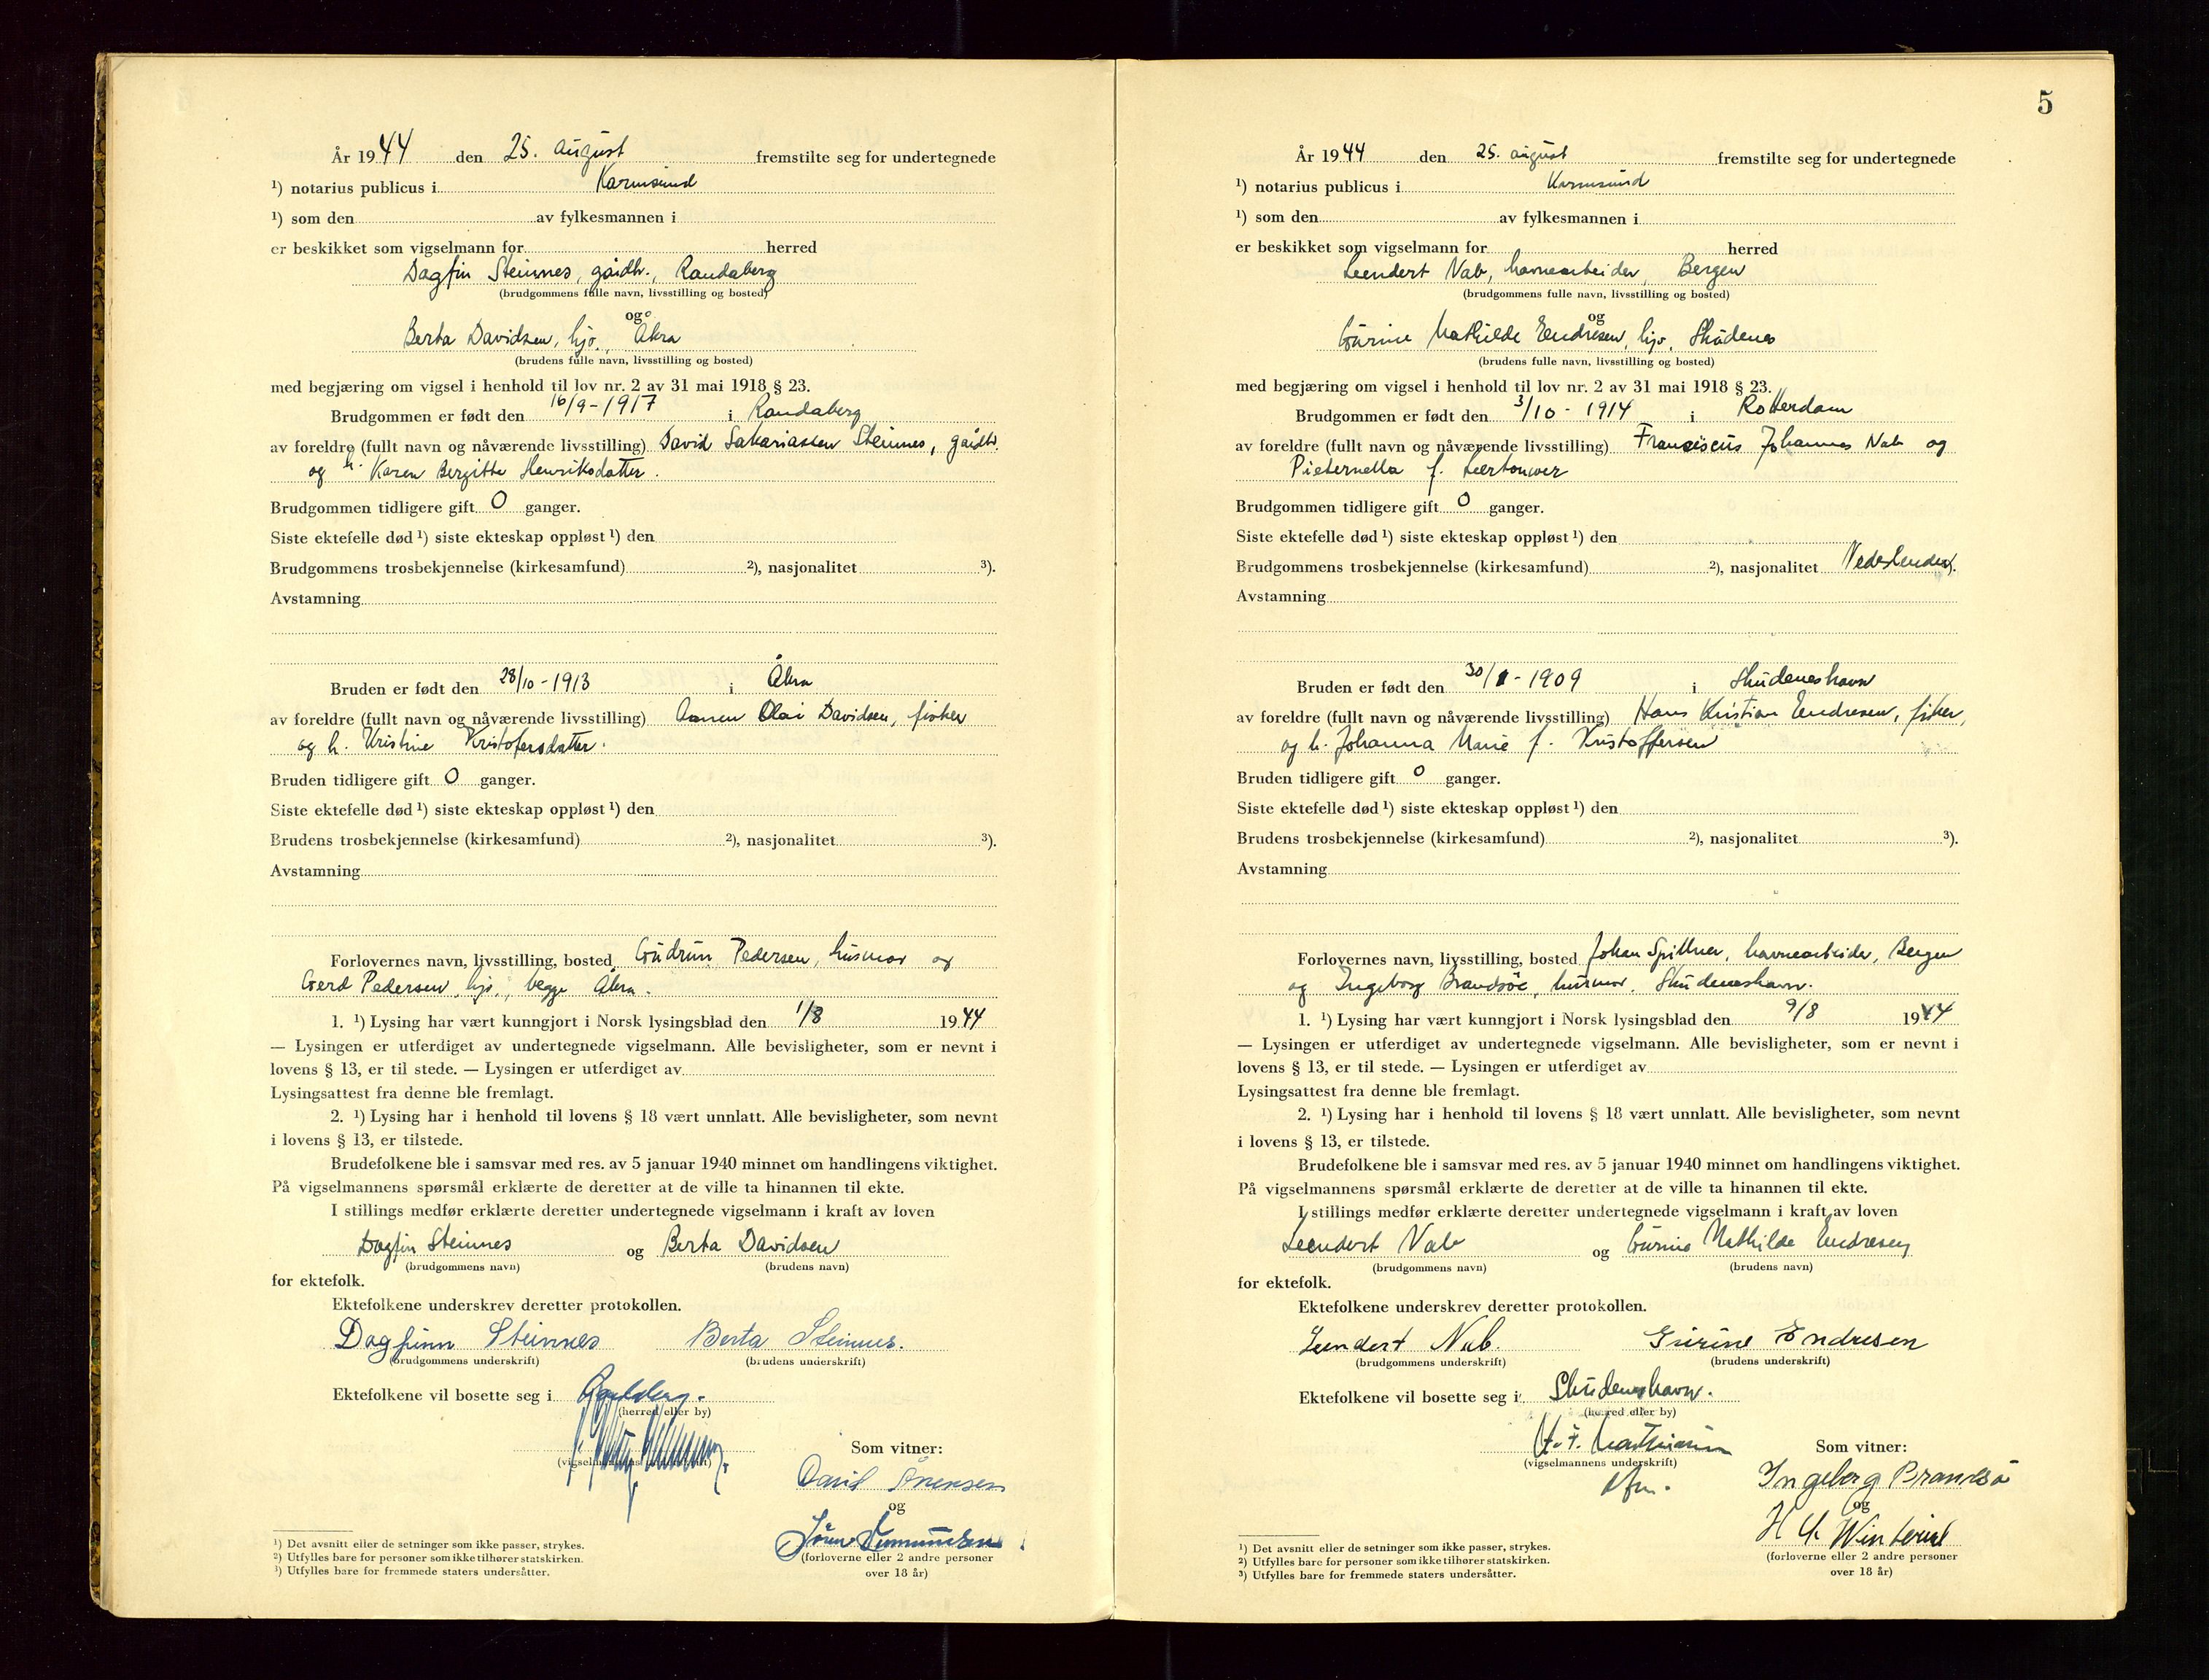 År 1944 den 25. august fremstilte seg for undertegnede
¹) notarius publicus i Karmsund
¹) som den av fylkesmannen i
er beskikket som vigselmann for herred
Dagfin Steinnes, gårdbr., Randaberg
(brudgommens fulle navn, livsstilling og bosted)
og
Berta Davidsen, hjv., Åkra
(brudens fulle navn, livsstilling og bosted)
med begjæring om vigsel i henhold til lov nr. 2 av 31 mai 1918 § 23.
Brudgommen er født den 16/9-1917 i Randaberg
av foreldre (fullt navn og nåværende livsstilling) David Sakariassen Steinnes, gårdbr.
og h. Karen Bergitte Henriksdatter.
Brudgommen tidligere gift 0 ganger.
Siste ektefelle død ¹) siste ekteskap oppløst ¹) den
Brudgommens trosbekjennelse (kirkesamfund) ²), nasjonalitet ³).
Avstamning
Bruden er født den 28/10-1913 i Åkra
av foreldre (fullt navn og nåværende livsstilling) Olai Davidsen, fisker
og h. Kristine Kristofersdatter.
Bruden tidligere gift 0 ganger.
Siste ektefelle død ¹) siste ekteskap oppløst ¹) den
Brudens trosbekjennelse (kirkesamfund) ²), nasjonalitet ³).
Avstamning
Forlovernes navn, livsstilling, bosted Gudrun Pedersen, husmor og
Gerd Pedersen, hjv., begge Åkra.
1. ¹) Lysing har vært kunngjort i Norsk lysingsblad den 1/8 1944
— Lysingen er utferdiget av undertegnede vigselmann. Alle bevisligheter, som er nevnt i
lovens § 13, er til stede. — Lysingen er utferdiget av
Lysingsattest fra denne ble fremlagt.
2. ¹) Lysing har i henhold til lovens § 18 vært unnlatt. Alle bevisligheter, som nevnt
i lovens § 13, er tilstede.
Brudefolkene ble i samsvar med res. av 5 januar 1940 minnet om handlingens viktighet.
På vigselmannens spørsmål erklærte de deretter at de ville ta hinannen til ekte.
I stillings medfør erklærte deretter undertegnede vigselmann i kraft av loven
Dagfin Steinnes og Berta Davidsen
(brudgommens navn) (brudens navn)
for ektefolk.
Ektefolkene underskrev deretter protokollen.
Dagfinn Steinnes Berta Steinnes.
(brudgommens underskrift) (brudens underskrift)
Ektefolkene vil bosette seg i
(herred eller by)
Som vitner:
(vigselmannens underskrift)
og
(forloverne eller 2 andre personer
over 18 år)
¹) Det avsnitt eller de setninger som ikke passer, strykes.
²) Utfylles bare for personer som ikke tilhører statskirken.
³) Utfylles bare for fremmede staters undersåtter.
5
År 1944 den 25. august fremstilte seg for undertegnede
¹) notarius publicus i Karmsund
¹) som den av fylkesmannen i
er beskikket som vigselmann for herred
Leendert Nab, havnearbeider, Bergen
(brudgommens fulle navn, livsstilling og bosted)
og
Gurine Mathilde Endresen, hjv, Skudenes
(brudens fulle navn, livsstilling og bosted)
med begjæring om vigsel i henhold til lov nr. 2 av 31 mai 1918 § 23.
Brudgommen er født den 3/10-1914 i Rotterdam
av foreldre (fullt navn og nåværende livsstilling) Franciscus Johannes Nab og
Pieternella f.
Brudgommen tidligere gift 0 ganger.
Siste ektefelle død ¹) siste ekteskap oppløst ¹) den
Brudgommens trosbekjennelse (kirkesamfund) ²), nasjonalitet Nederlender ³).
Avstamning
Bruden er født den 30/1-1909 i Skudeneshavn
av foreldre (fullt navn og nåværende livsstilling) Hans Kristian Endresen, fisker,
og h. Johanna Marie f. Kristoffersen
Bruden tidligere gift 0 ganger.
Siste ektefelle død ¹) siste ekteskap oppløst ¹) den
Brudens trosbekjennelse (kirkesamfund) ²), nasjonalitet ³).
Avstamning
Forlovernes navn, livsstilling, bosted Johan Spillner, havnearbeider, Bergen
og Ingeborg Brandsøe, husmor, Skudeneshavn.
1. ¹) Lysing har vært kunngjort i Norsk lysingsblad den 9/8 1944
— Lysingen er utferdiget av undertegnede vigselmann. Alle bevisligheter, som er nevnt i
lovens § 13, er til stede. — Lysingen er utferdiget av
Lysingsattest fra denne ble fremlagt.
2. ¹) Lysing har i henhold til lovens § 18 vært unnlatt. Alle bevisligheter, som nevnt
i lovens § 13, er tilstede.
Brudefolkene ble i samsvar med res. av 5 januar 1940 minnet om handlingens viktighet.
På vigselmannens spørsmål erklærte de deretter at de ville ta hinannen til ekte.
I stillings medfør erklærte deretter undertegnede vigselmann i kraft av loven
Leendert Nab og Gurine Mathilde Endresen
(brudgommens navn) (brudens navn)
for ektefolk.
Ektefolkene underskrev deretter protokollen.
Leendert Nab. Gurine Endresen
(brudgommens underskrift) (brudens underskrift)
Ektefolkene vil bosette seg i Skudeneshavn.
(herred eller by)
Som vitner:
(vigselmannens underskrift)
Ingeborg Brandsø
og
(forloverne eller 2 andre personer
over 18 år)
¹) Det avsnitt eller de setninger som ikke passer, strykes.
²) Utfylles bare for personer som ikke tilhører statskirken.
³) Utfylles bare for fremmede staters undersåtter.